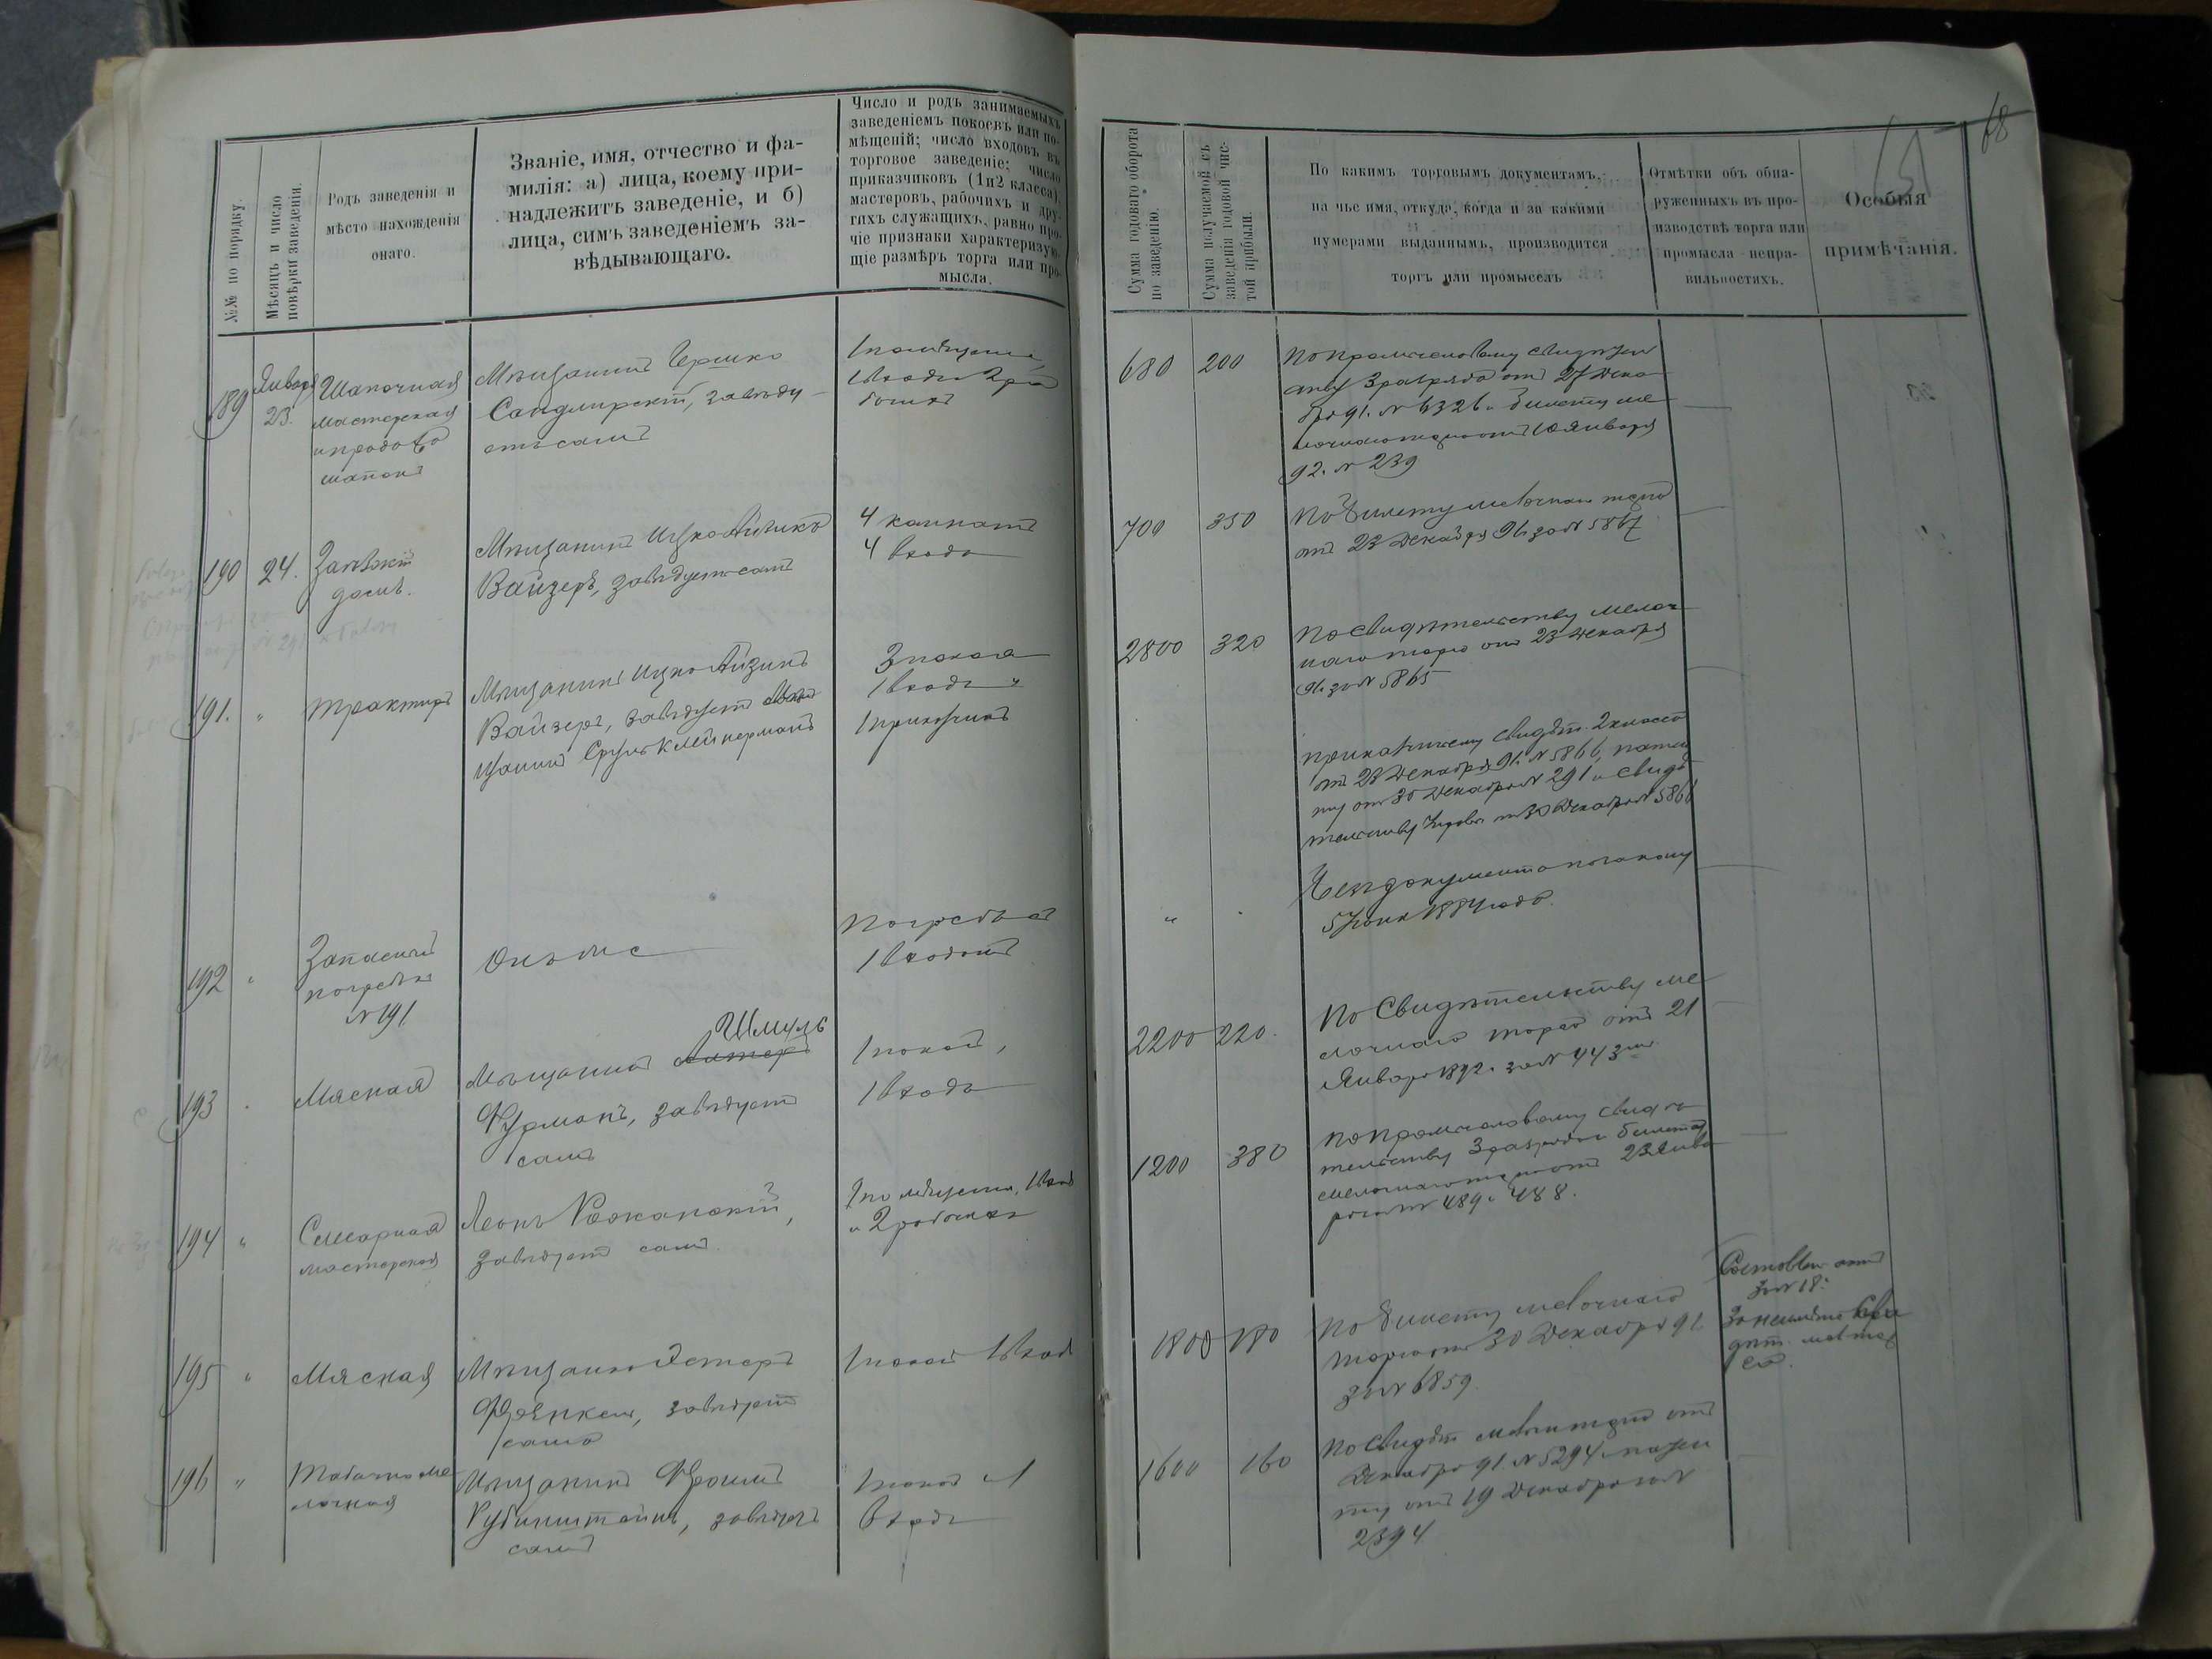 №№ по порядку.
Мѣсяцъ и число
повѣрки заведенія.
Родъ заведенія и
мѣсто нахожденія
онаго.
Званіе, имя, отчество и фа-
милія: а) лица, коему при-
надлежитъ заведеніе, и б)
лица, симъ заведеніемъ за-
вѣдывающаго.
Число и родъ занимаемыхъ
заведеніемъ покоевъ или по-
мѣщеній; число входовъ въ
торговое заведеніе; число
приказчиковъ (1 и 2 класса),
мастеровъ, рабочихъ и дру-
гихъ служащихъ, равно про-
чіе признаки характеризую-
щіе размѣръ торга или про-
мысла.
Сумма годоваго оборота
по заведенію.
Сумма получаемой съ
заведенія годовой чис-
той прибыли.
По какимъ торговымъ документамъ,
на чье имя, откуда, когда и за какими
нумерами выданнымъ, производится
торгъ или промыселъ
Отмѣтки объ обна-
руженныхъ въ про-
изводствѣ торга или
промысла непра-
вильностяхъ.
Особыя
примѣчанія.
68
189
Января
23.
Шапочная
мастерская
и продажа
шапокъ
Мѣщанинъ Гершко
Сандмирскій, завѣду-
етъ самъ
1 помѣщеніе,
1 входъ 2 ра-
бочихъ
680
200
По промысловому свидѣтел
ству 3 разряда отъ 27 Дека
бря 91. № 6326 и билету ме
лочнаго торга отъ 10 Января
92. № 239
190
24.
Заѣзжій
домъ.
Мѣщанинъ Ицко Айзикъ
Вайзеръ, завѣдуетъ самъ
4 комнаты
4 входа
700
350
По билету мелочнаго торга
отъ 23 Декабря 91 за № 5867
191.
"
Трактиръ
Мѣщанинъ Ицко Айзикъ
Вайзеръ, завѣдуетъ мѣ
щанинъ Сруль Клейнерманъ
3 покоя
1 входъ и
1 прикащикъ
2800
320
По свидѣтельству мелоч
наго торга отъ 23 Декабря
91 за № 5865
прикащичьему свидѣт. 2 класса
отъ 23 Декабря 91. № 5866, патен
ту отъ 30 Декабря № 291 и свидѣ
тельству отъ 30 Декабря № 5868
192
"
Запасный
погребъ къ
№ 191
Онъ же
Погребъ съ
1 входомъ
"
Безъ документа по закону
5 Іюня 1884 года.
193
Мясная
Шмуль
Мѣщанинъ
Фурманъ, завѣдуетъ
самъ
1 покой,
1 входъ
2200
220.
По Свидѣтельству ме
лочнаго торга отъ 21
Января 1892 за № 443
194
"
Слесарная
мастерская
Леонъ Рожанскій,
завѣдуетъ самъ.
1 помѣщеніе, 1 входъ
и 2 рабочихъ
1200
380
По промысловому свидѣ
тельству 3 разряда и билету
мелочнаго торга отъ 23 Янва
ря за № 489 и 488.
195
"
Мясная
Мѣщанка Эстеръ
Френкель, завѣдуетъ
сама
1 покой 1 входъ
1800
180
По билету мелочнаго
торга отъ 30 Декабря 91
за № 6859.
Составленъ актъ
за № 18.
За неимѣніе Сви
дѣт. мел тор
196
"
Табачно ме
лочная
Мѣщанинъ Фроимъ
Рубинштейнъ, завѣдуетъ
самъ
1 покой и 1
входъ
1600
160
По свидѣт мелочн торга отъ
Декабря 91. № 5294 и патен
ту отъ 19 Декабря за №
2394